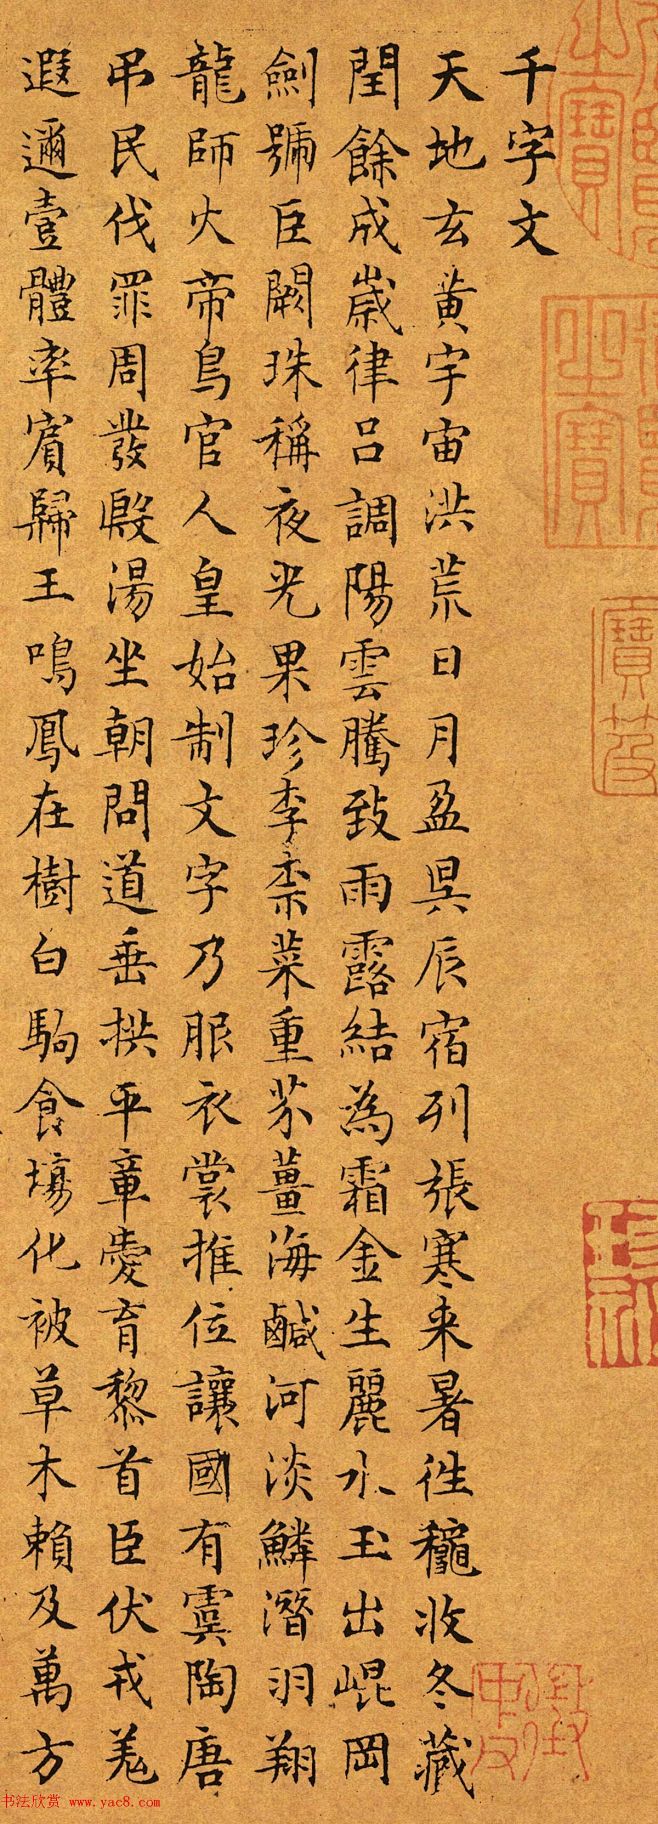 千字文
天地玄黃宇宙洪荒日月盈昃辰宿列張寒来暑往穐收冬藏
閏餘成歲律吕調陽雲騰致雨露結為霜金生麗水玉出崐岡
劍號臣闕珠稱夜光果珍李柰菜重芥薑海鹹河淡鱗潛羽翔
龍師火帝鳥官人皇始制文字乃服衣裳推位讓國有虞陶唐
吊民伐罪周發殷湯坐朝問道垂拱平章愛育黎首臣伏戎羌
遐邇壹體率賓歸王鳴鳳在樹白駒食場化被草木賴及萬方
书法欣赏 www.yac8.com